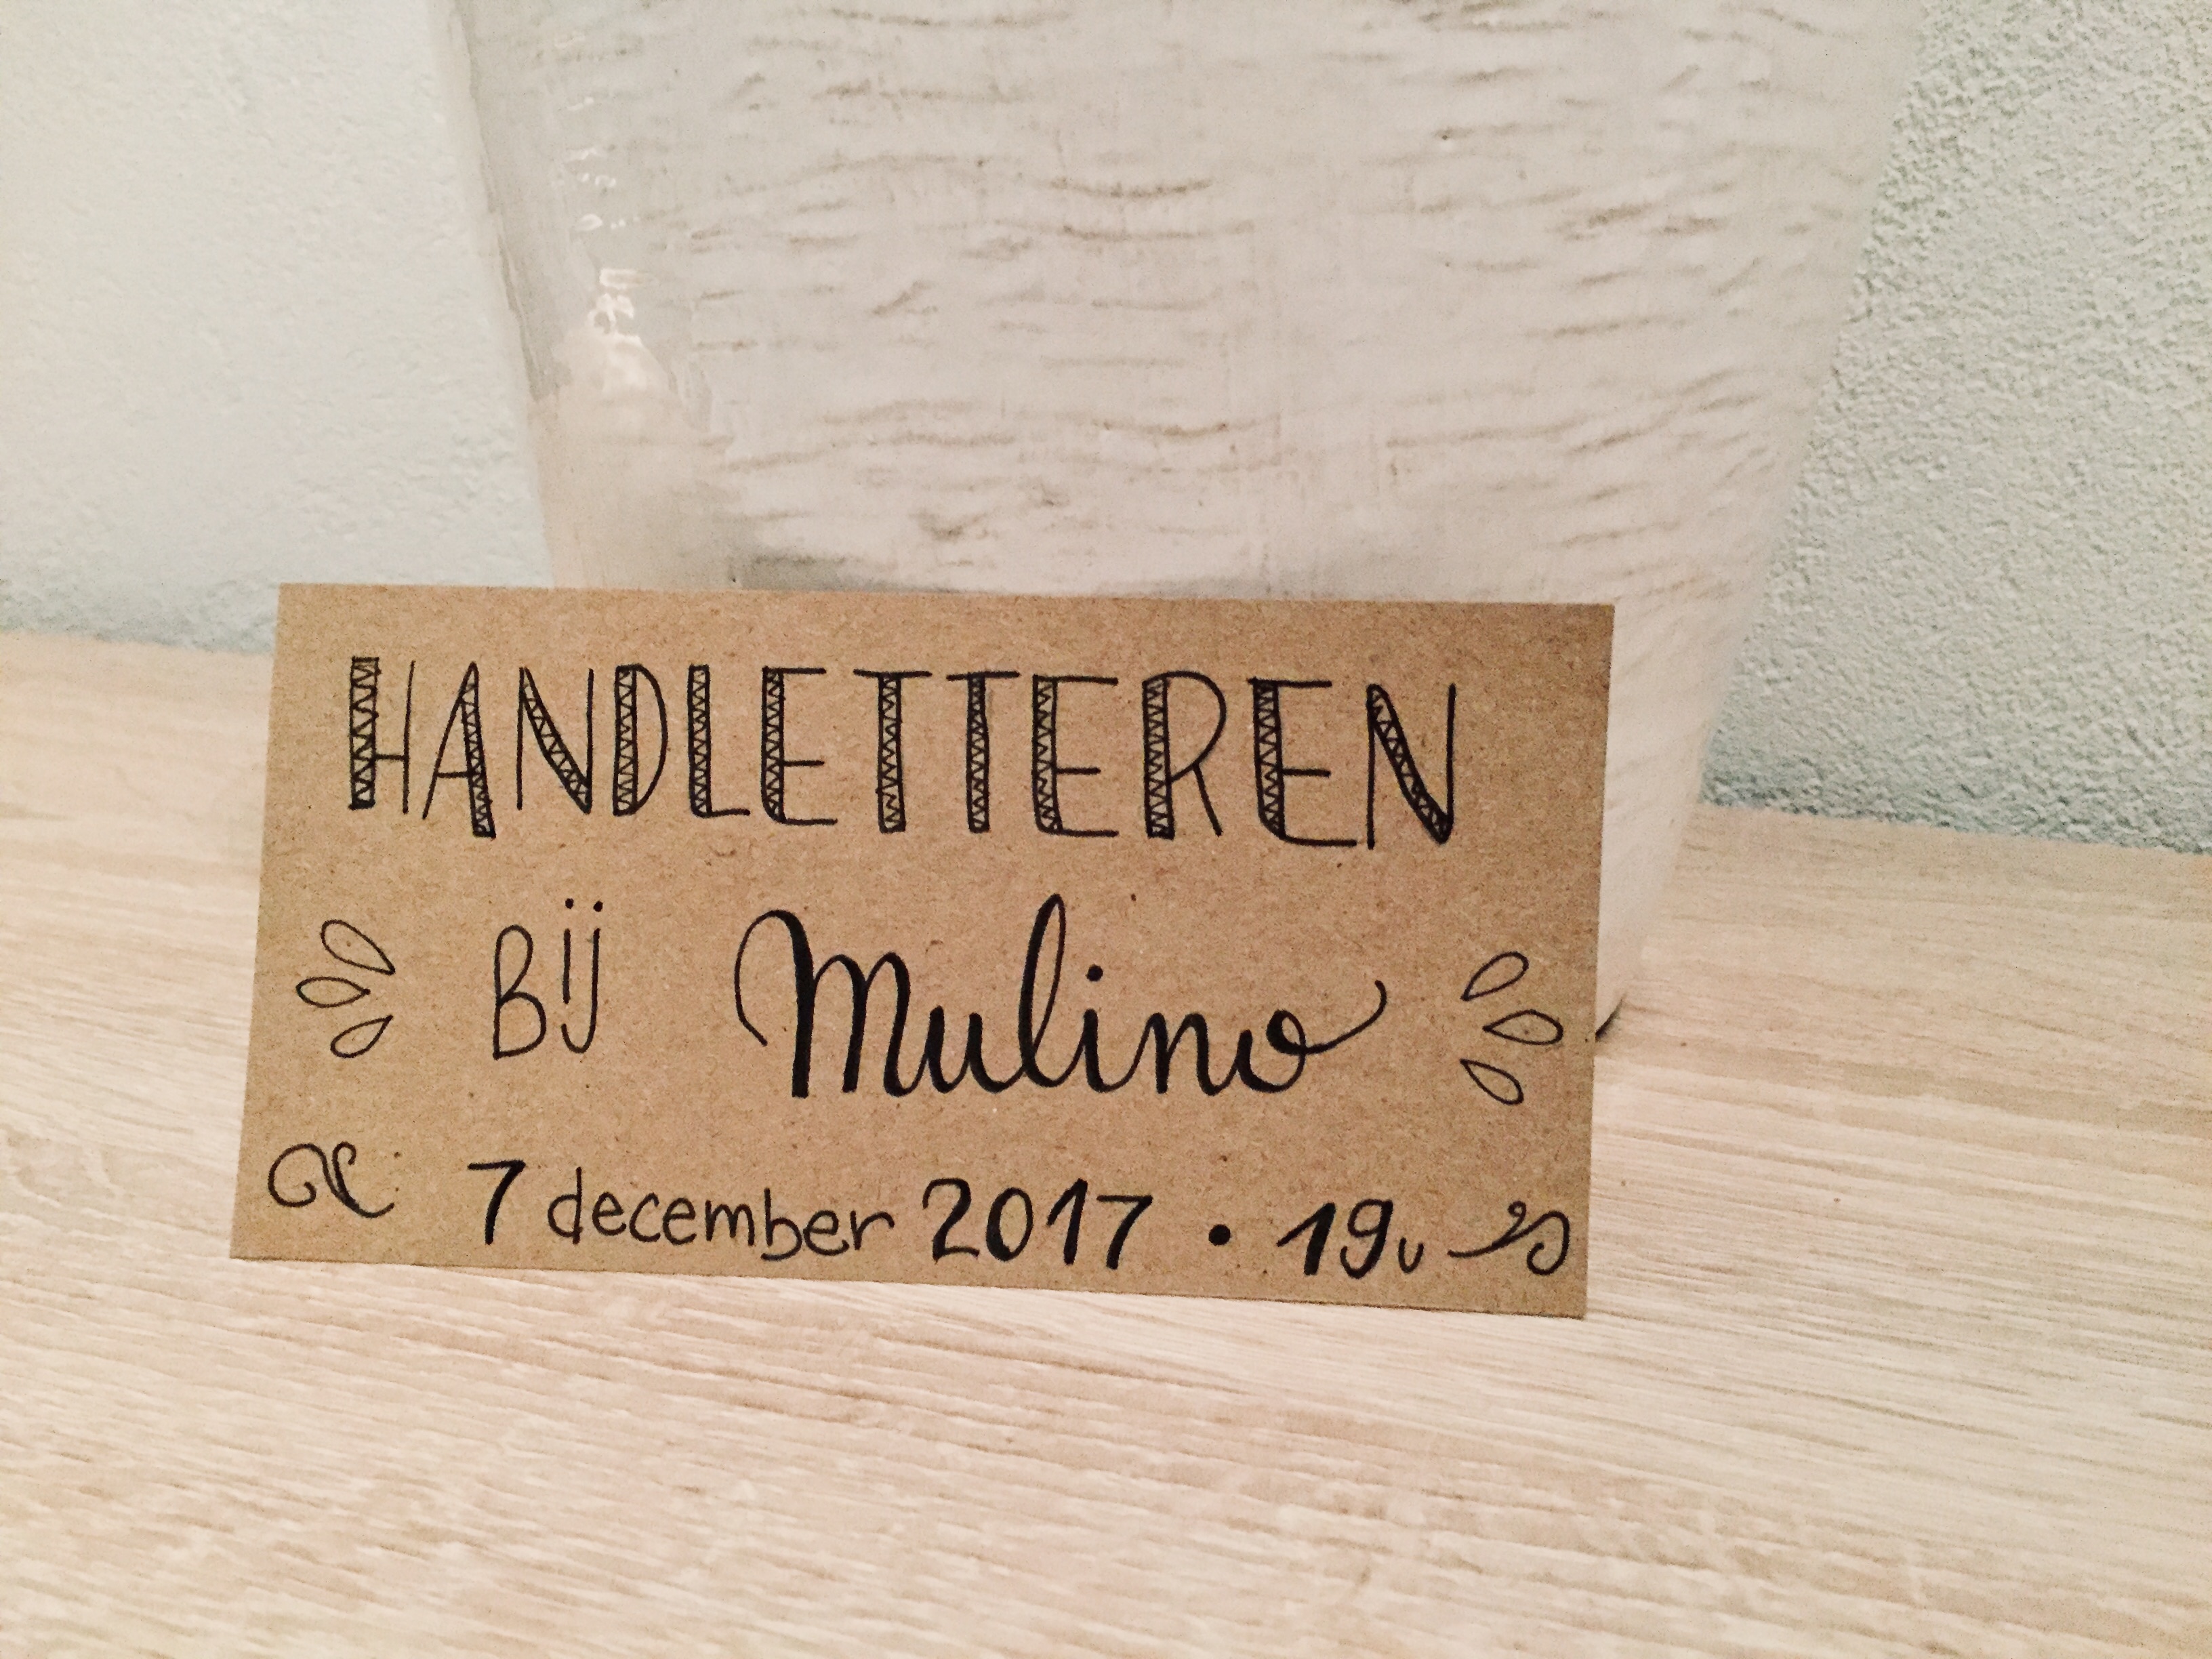 HANDLETTEREN
Bij Mulino
7 december 2017 • 19u